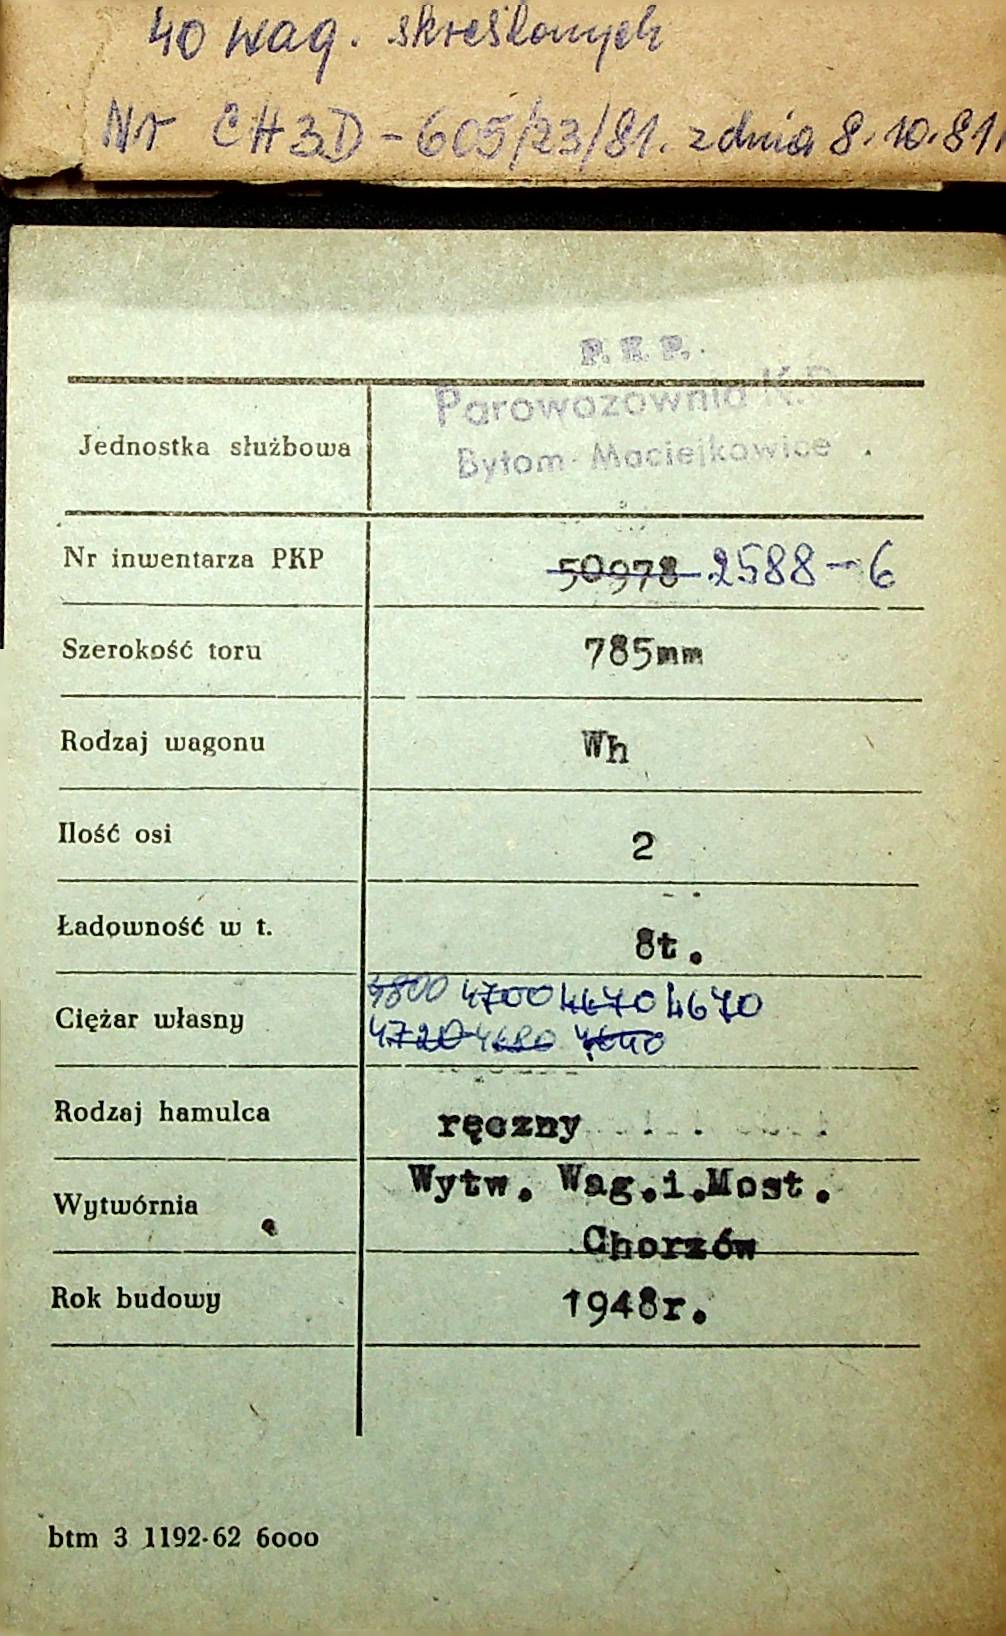 40 wag. skreślonych
Nr CH3D-605/23/81. z dnia 8.10.81.
P. K. P.
Parowozownia K.D
Jednostka służbowa
Bytom-Maciejkowice
Nr inwentarza PKP 50978 2588-6
Szerokość toru 785mm
Rodzaj wagonu Wh
Ilość osi 2
Ładowność w t. 8t.
4800 4700 4670 4670
Ciężar własny
4720 4680 4640
Rodzaj hamulca ręczny
Wytw. Wag.i.Most.
Wytwórnia
Chorzów
Rok budowy 1948r.
btm 3 1192-62 6000